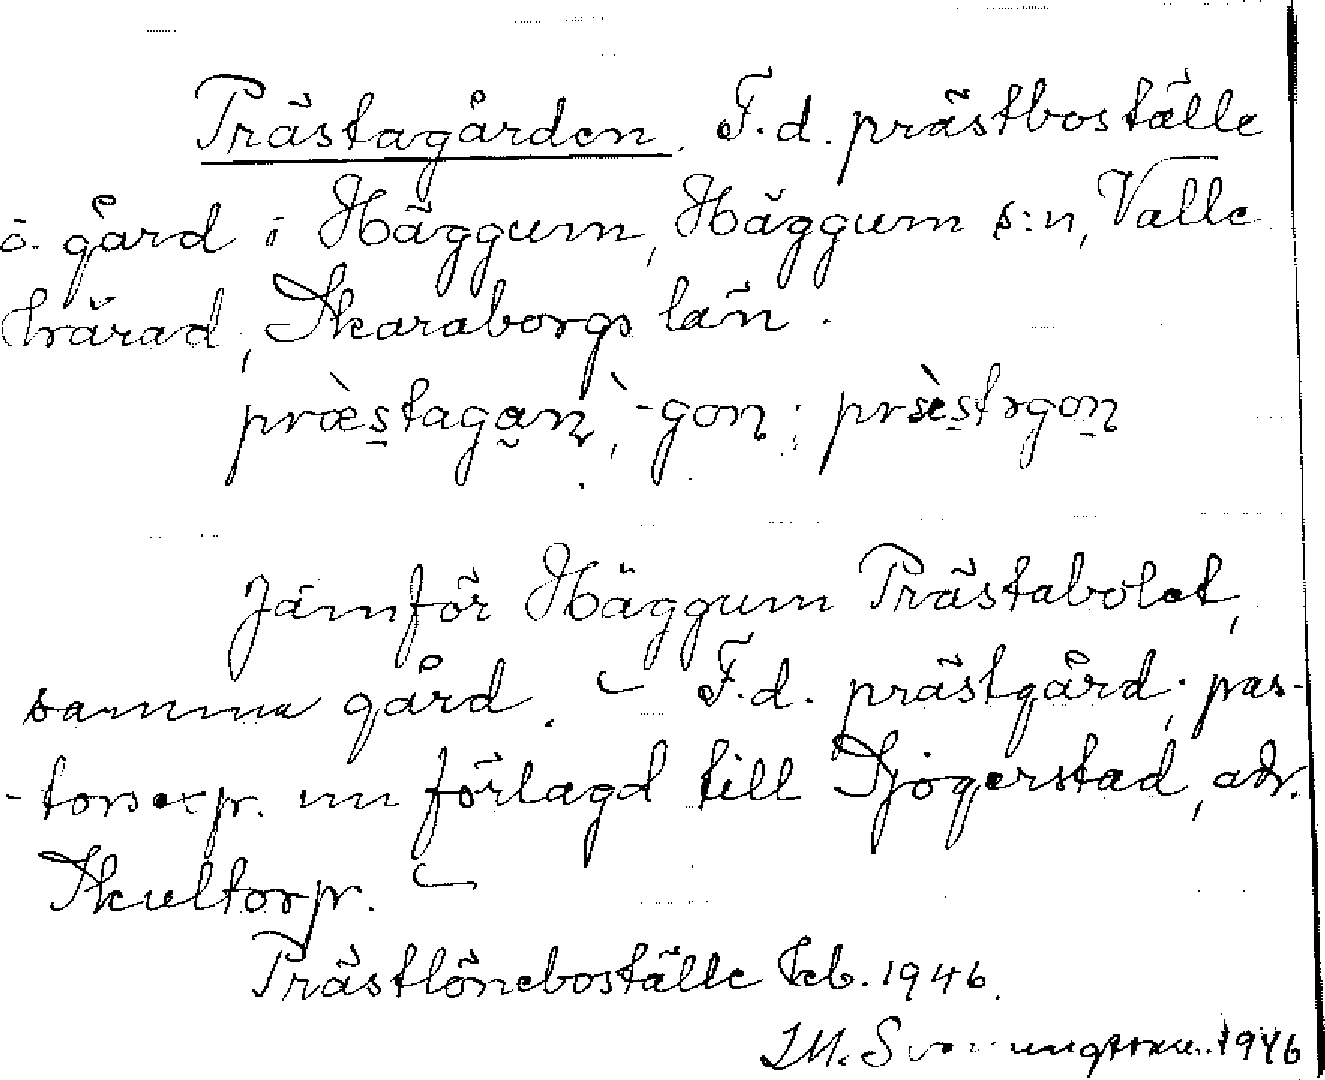 Prästagården. F.d. prästboställe
o. gård i Häggum, Häggum s:n, Valle
härad, Skaraborgs län.
præ̀stagan, -gon; præ̀strgon
Jämför Häggum Prästabolet,
samma gård. – F.d. prästgård; pas-
-torsexp. nu förlagd till Sjogerstad, adr.
Skultorp. –
Prästlöneboställe Feb. 1946.
1946